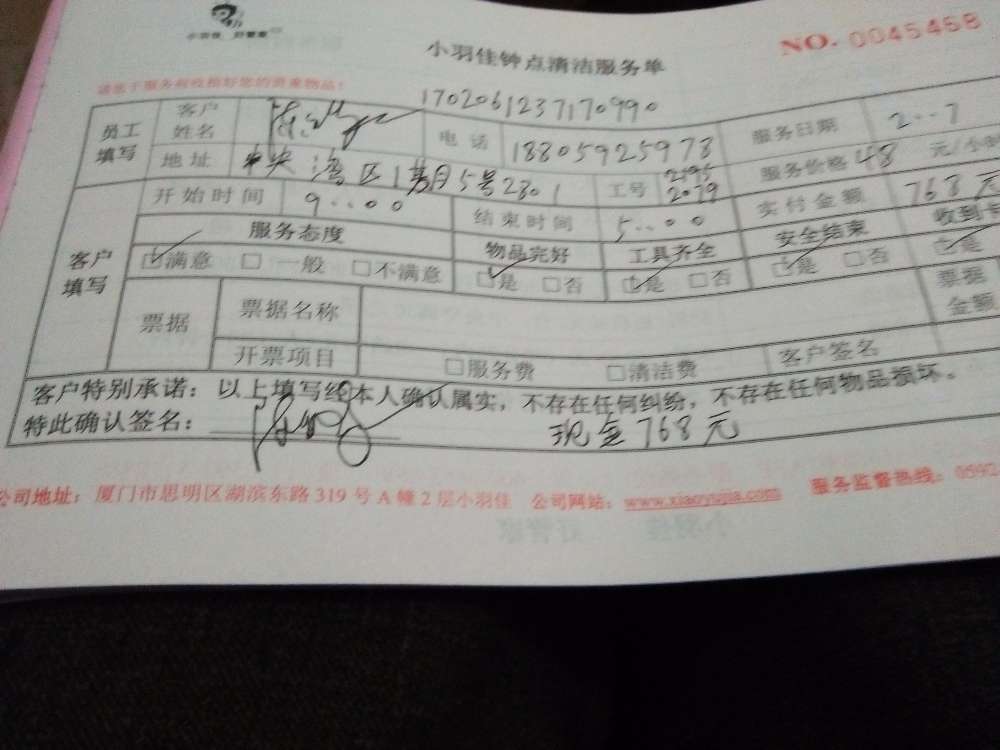 小羽佳 好管家
小羽佳钟点清洁服务单
NO. 0045458
请您于服务前收拾好您的贵重物品！
1702061237170990
员工填写
客户姓名
电话 18805925978
服务日期 2..7
地址 中央湾区1期5号2301
工号 2195 2079
服务价格 48 元/小时
客户填写
开始时间 9..00
结束时间 5..00
实付金额 768元
服务态度 物品完好 工具齐全 安全结束 收到卡
☑满意 □一般 □不满意 ☑是 □否 ☑是 □否 ☑是 □否 ☑是
票据 票据名称 票据金额
开票项目 □服务费 □清洁费 客户签名
客户特别承诺：以上填写经本人确认属实，不存在任何纠纷，不存在任何物品损坏。
特此确认签名： 现金768元
公司地址：厦门市思明区湖滨东路 319 号 A 幢 2 层小羽佳 公司网站：www.xiaoyujia.com 服务监督热线：0592